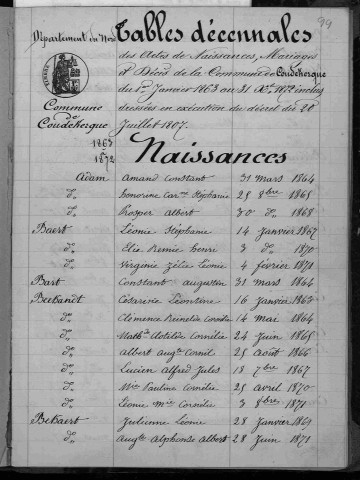 99
Département du Nord
Tables décennales
des Actes de Naissances, Mariages
& Décès de la Commune de Coudekerque
du 1er Janvier 1863 au 31 Xbre 1872 inclus
dressées en exécution du décret du 20
Juillet 1807.
Commune
de
Coudekerque
1863
à
1872
Naissances
Adam Amand Constant 31 mars 1864
do honorine Stéphanie 25 8bre 1865
do Prosper Albert 30 do 1868
Baert Léonie Stéphanie 14 Janvier 1867
do Elie Remie henri 3 do 1870
do Virginie Zélie Léonie 4 février 1871
Bart Constant augustin 31 mars 1864
Bechandt Césarine Léontine 16 Janvier 1863
do Clémence Reinelde Cornélie 14 mai 1864
do Math. Clotilde Cornélie 24 Juin 1865
do albert augte Cornil 25 aout 1866
do Lucien Alfred Jules 18 7bre 1867
do Mie Pauline Cornélie 25 avril 1870
do Léonie Mie Cornélie 3 8bre 1871
Behaert Julienne Léonie 28 Janvier 1869
do Augte alphonse albert 28 Juin 1871